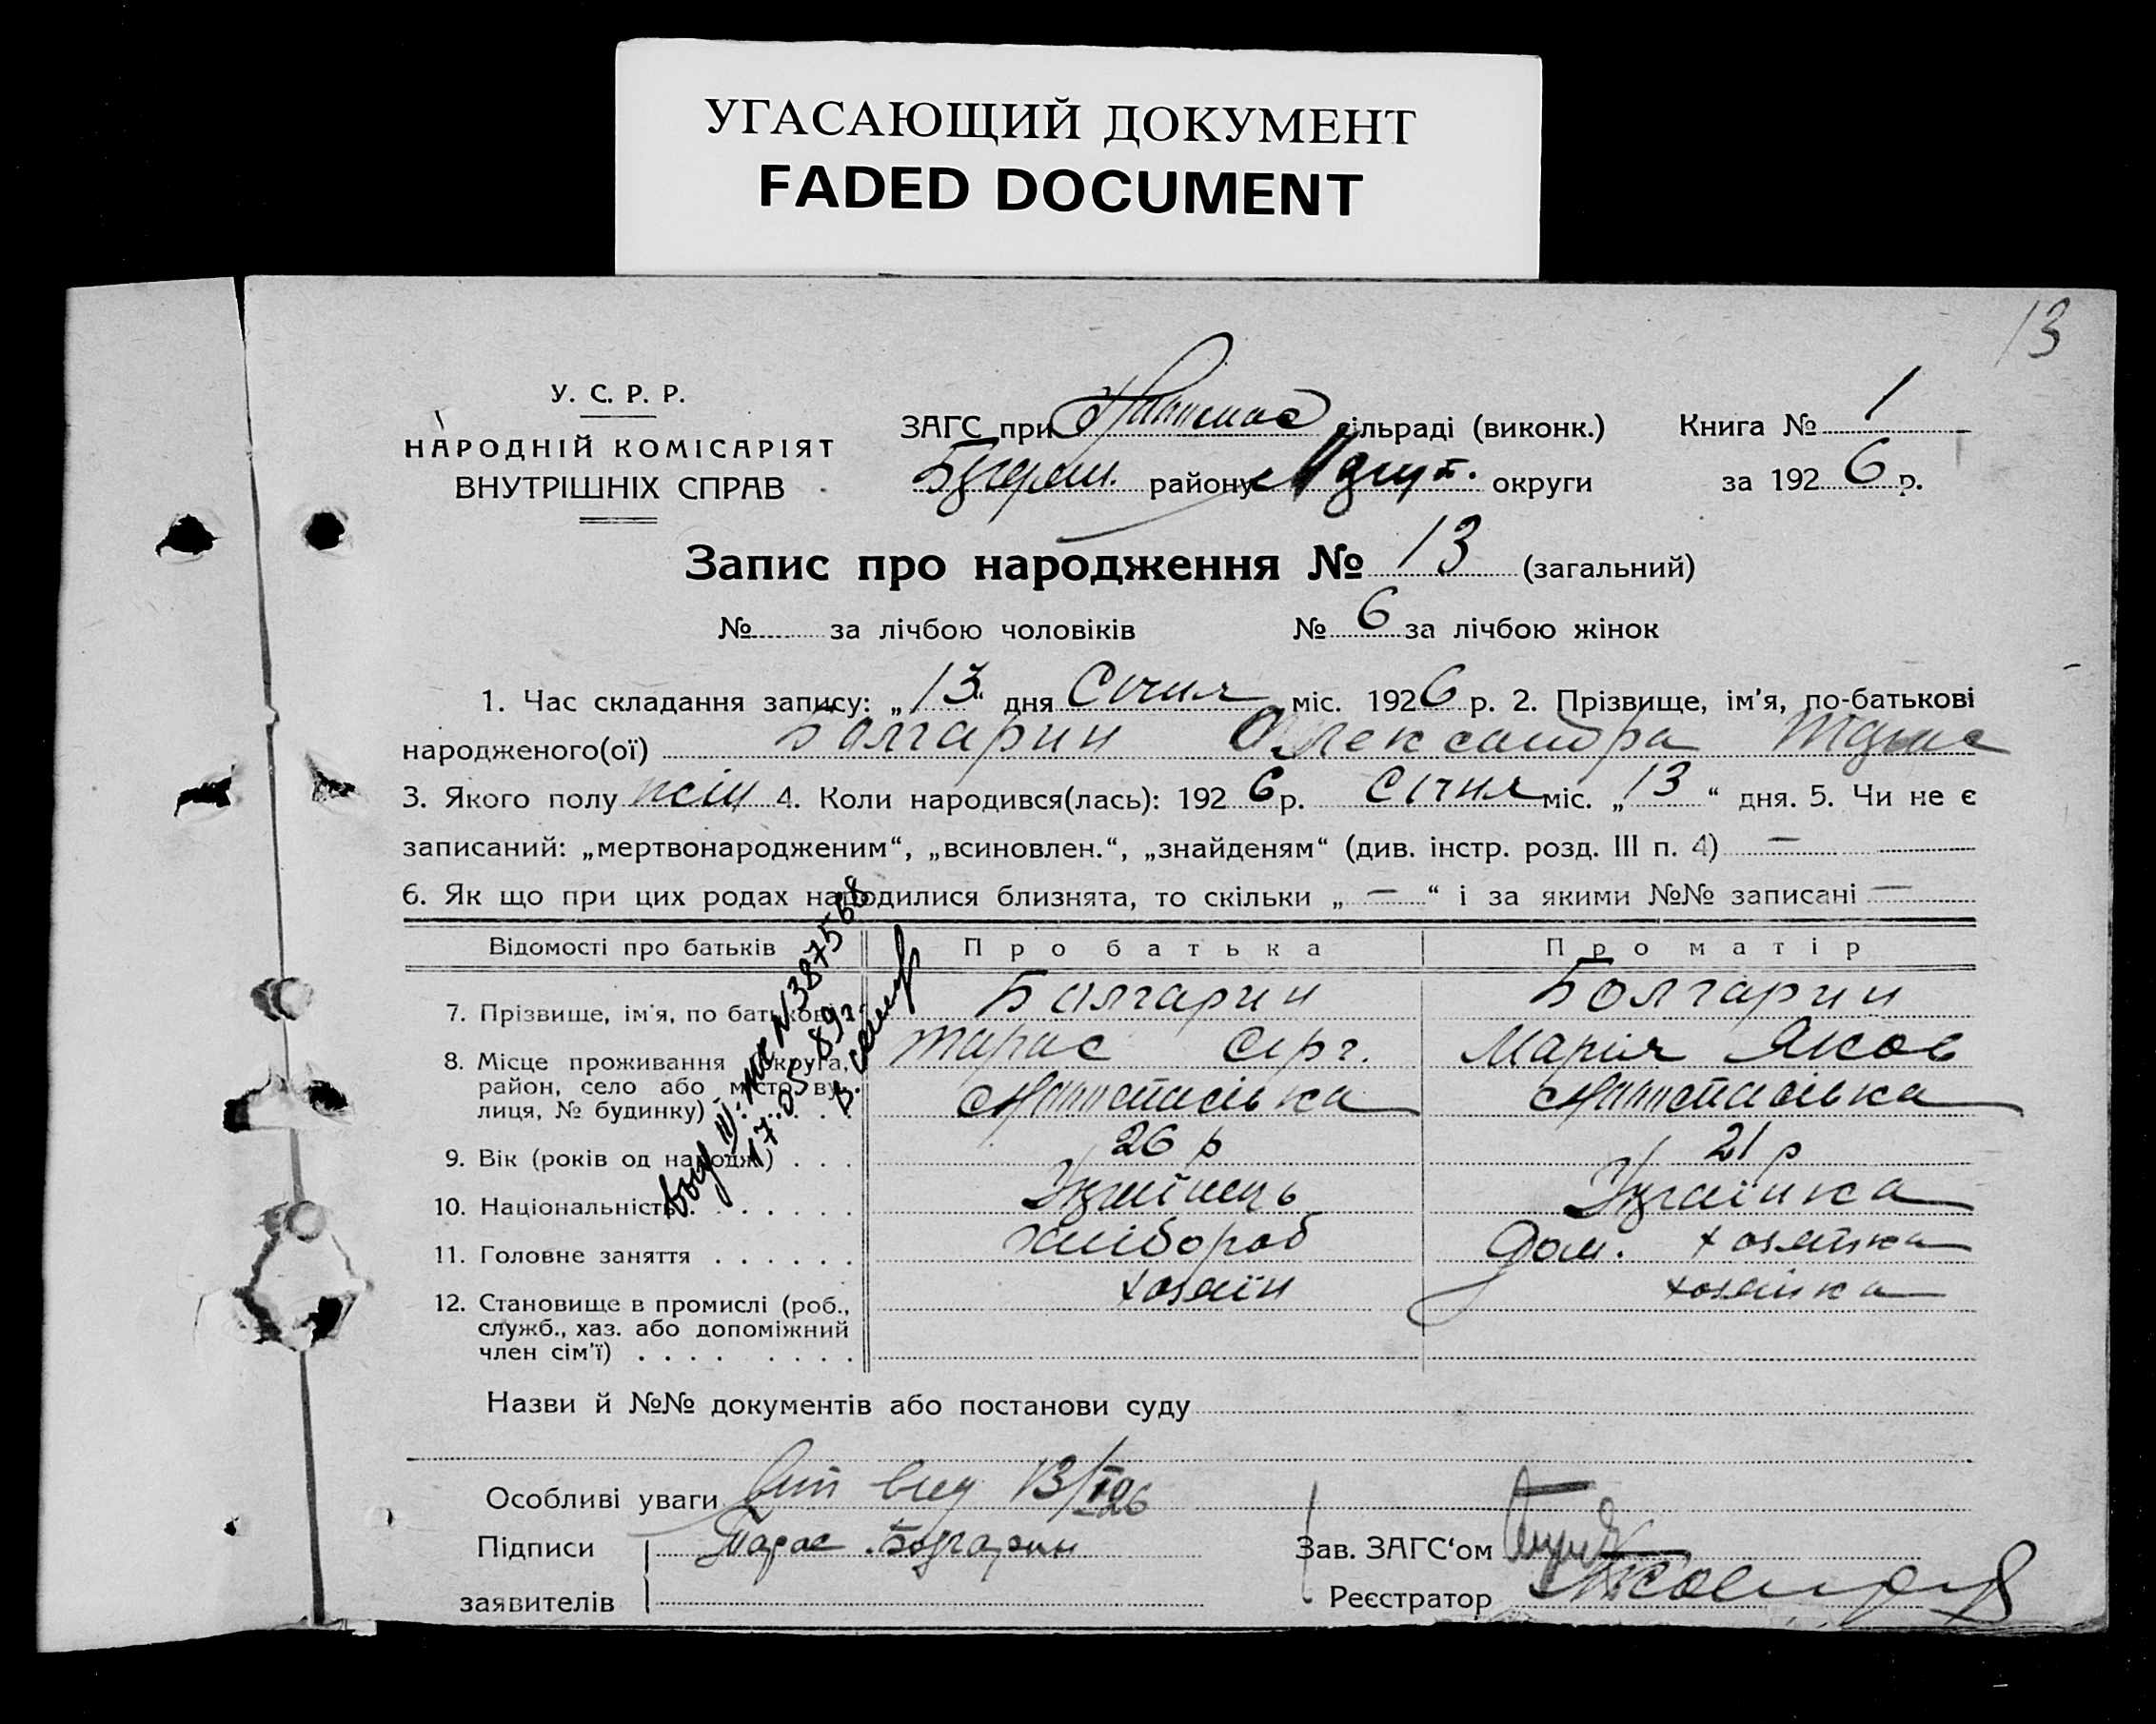 УГАСАЮЩИЙ ДОКУМЕНТ
FADED DOCUMENT
13
У. С. Р. Р.
НАРОДНІЙ КОМІСАРІЯТ
ВНУТРІШНІХ СПРАВ
ЗАГС при сільраді (виконк.) Книга № 1
району округи за 1926 р.
Запис про народження № 13 (загальний)
№ за лічбою чоловіків № 6 за лічбою жінок
1. Час складання запису: „13“ дня Січня міс. 1926 р. 2. Прізвище, ім'я, по-батькові
народженого(ої) Болгарин Олександра
3. Якого полу жін 4. Коли народився(лась): 1926 р. Січня міс. „13“ дня. 5. Чи не є
записаний: „мертвонародженим“, „всиновлен.“, „знайденям“ (див. інстр. розд. III п. 4) —
6. Як що при цих родах народилися близнята, то скільки „—“ і за якими №№ записані —
Відомості про батьків Про батька Про матір
7. Прізвище, ім'я, по батькові Болгарин Болгарин
Тарас Серг. Марія Яков
8. Місце проживання (округа,
район, село або місто, ву-
лиця, № будинку) Анастасівка Анастасівка
9. Вік (років од народж.) . . . 26 р 21 р
10. Національність . . . . . . . Українець Українка
11. Головне заняття . . . . . . хлібороб Дом. хозяйка
12. Становище в промислі (роб.,
служб., хаз. або допоміжний
член сім'ї) . . . . . . . . хозяїн хозяйка
N 387568
17.05 89г
Назви й №№ документів або постанови суду
Особливі уваги вид 13/I 26
Підписи Тарас Болгарин Зав. ЗАГС‘ом
заявителів Реєстратор